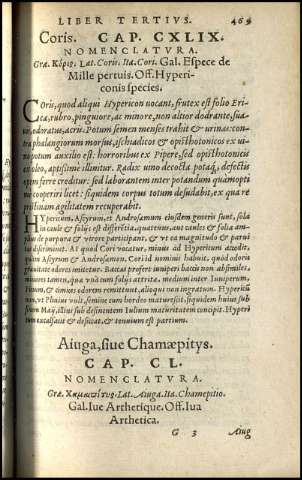 LIBER TERTIVS. 469
Coris. CAP. CXLIX.
NOMENCLATVRA.
Græ. Κόρις. Lat. Coris. Ita. Cori. Gal. Espece de
Mille pertuis. Off. Hyperi-
conis species.
Coris, quod aliqui Hypericon uocant, frutex est folio Eri-
cæ, rubro, pinguiore, ac minore, non altior dodrante, sua-
uis, odoratus, acris. Potum semen menses trahit & urinas: con-
tra phalangiorum morsus, ischiadicos & opisthotonicos ex ui-
no potum auxilio est: horroribus ex Pipere, sed opisthotonicis
ex oleo, aptissime illinitur. Radix uino decocta potaq́, defectis
opem ferre creditur: sed laborantem inter potandum quamopti
me cooperiri licet: siquidem corpus totum desudabit, ex qua re
pristinam agilitatem recuperabit.
Hypericum, Ascyrum, et Androsæmum eiusdem generis sunt, sola
in caule & folijs est differētia, quatenus, aut caules & folia am-
plius de purpura & virore participant, & vt ea magnitudo & parui
tas discriminat. At quod Cori vocatur, minus ad Hypericum
quàm Ascyrum & Androsæmon. Cori id nominis habuit, quòd odoris
grauitate cimices imitetur. Baccas profert iuniperi baccis non absimiles,
minores tamen, quæ vti cum folijs attritæ, medium inter Iuniperum,
Pinum, & cimices odorem remittunt, alioqui non ingratum. Hypericū
non, vt Fuchsius vult, semine cum hordeo maturescit, siquidem huius sub
finem Maij, illius sub desinentem Iulium maturitatem concipit. Hyperi
cum excalfacit & desiccat, & tenuium est partium.
Aiuga, siue Chamæpitys.
CAP. CL.
NOMENCLATVRA.
Græ. Χαμαιπίτυς. Lat. Aiuga. Ita. Chamepitio.
Gal. Iue Arthetique. Off. Iua
Arthetica.
G 3 Aiug